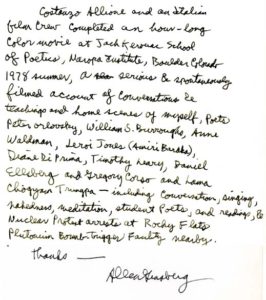 Costanzo Allione and an Italian
film crew completed an hour-long
Color movie at Jack Kerouac School
of Poetics, Naropa Institute, Boulder Colorado
1978 summer, A serious & spontaneously
filmed account of Conversations &
teachings and home scenes of myself, Poets
Peter Orlovsky, William S. Burroughs, Anne
Waldman, Leroi Jones (Amiri Baraka),
Diane Di Prima, Timothy Leary, Daniel
Ellsberg and Gregory Corso and Lama
Chögyam Trungpa — including Conversation, singing,
nakedness, meditation, student Poets, and readings, &
Nuclear Protest arrests at Rocky Flats
Plutonium Bomb-trigger Facility nearby.
Thanks —
Allen Ginsberg